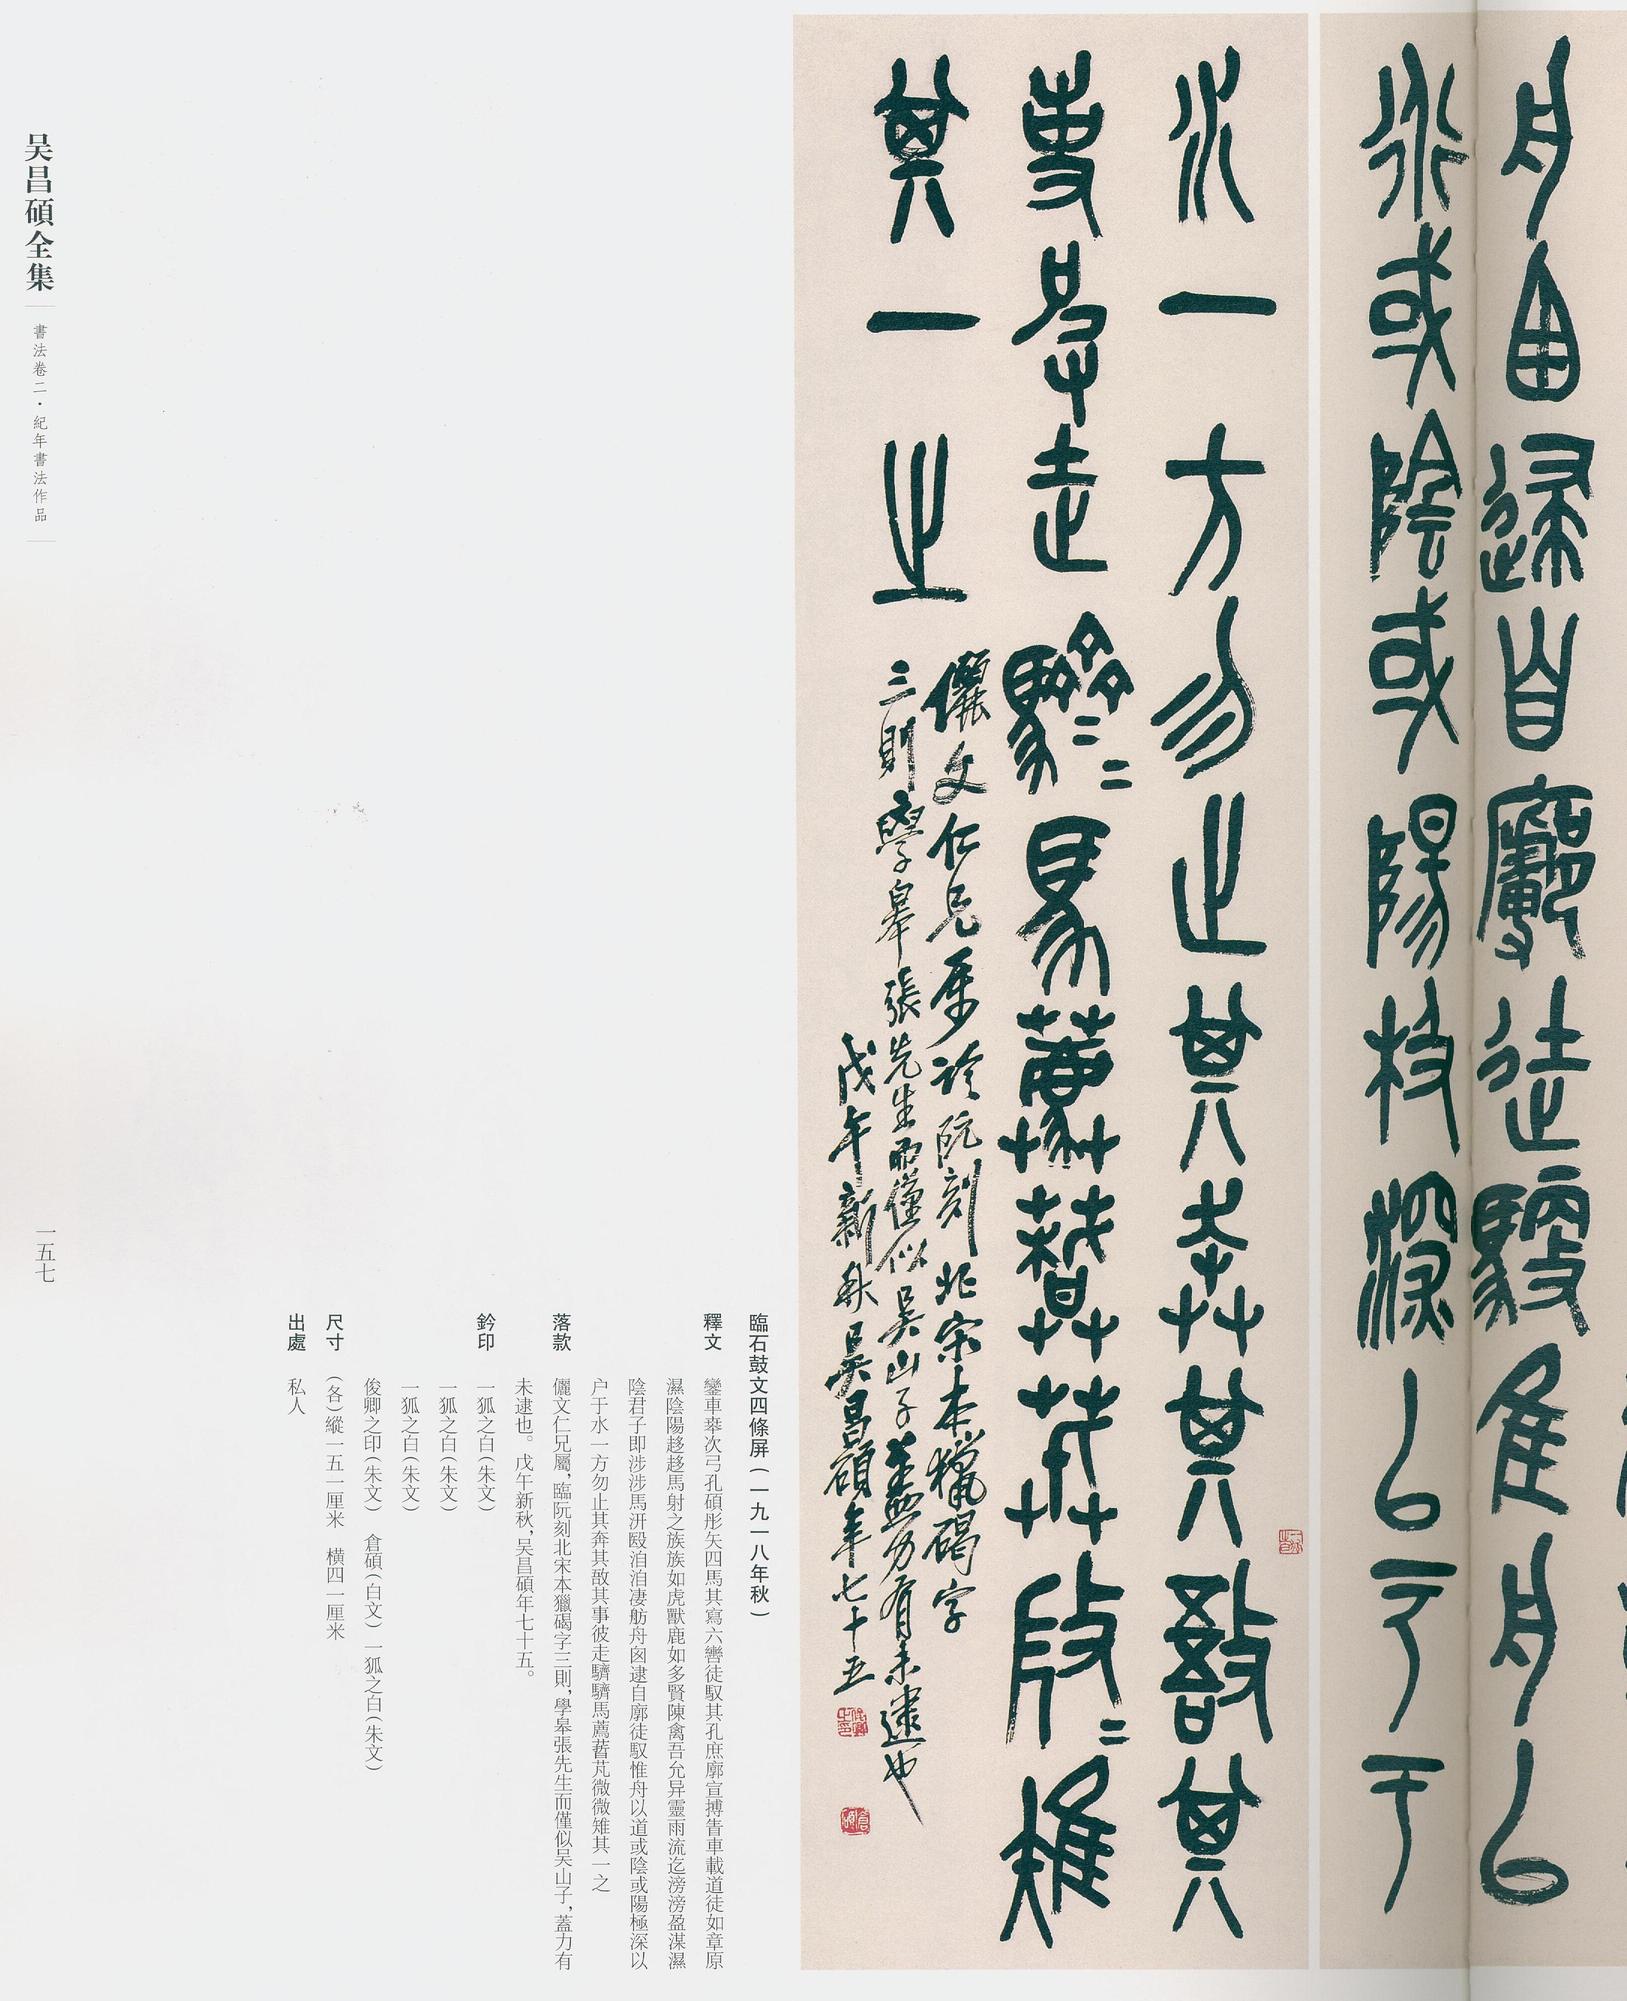 舟囱逮自廓徒馭惟舟以
道或陰或陽极深以户于
水一方勿止其奔其敔其
事彼走驕=馬薦蓸芃殹=雉
其一之
儷文仁兄屬臨阮刻北宋本獵碣字
三則學皋張先生而僅似吴山子蓋力有未逮也
戊午新秋吴昌碩年七十五
臨石鼓文四條屏(一九一八年秋)
釋文
鑾車桒次弓孔碩彤矢四馬其寫六轡徒馭其孔庶廓宣搏眚車載道徒如章原
濕陰陽趍趍馬射之族族如虎獸鹿如多賢陳禽吾允异靈雨流迄滂滂盈渫濕
陰君子即涉涉馬汧殹洎洎凄舫舟囱逮自廓徒馭惟舟以道或陰或陽極深以
户于水一方勿止其奔其敔其事彼走驕驕馬薦蓸芃微微雉其一之
落款
儷文仁兄屬,臨阮刻北宋本獵碣字三則,學皋張先生而僅似吴山子,蓋力有
未逮也。戊午新秋,吴昌碩年七十五。
鈐印
一狐之白(朱文)
一狐之白(朱文)
一狐之白(朱文)
俊卿之印(朱文) 倉碩(白文) 一狐之白(朱文)
尺寸 (各)縱一五一厘米 横四一厘米
出處 私人
吴昌碩全集
書法卷二·紀年書法作品
一五七